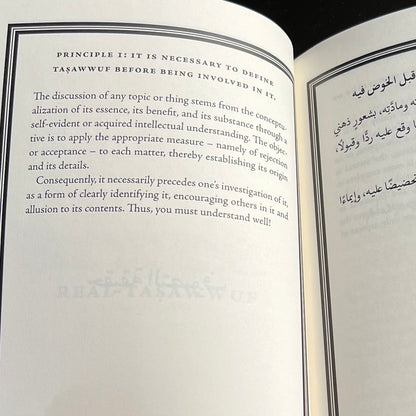 PRINCIPLE 1: IT IS NECESSARY TO DEFINE
TAṢAWWUF BEFORE BEING INVOLVED IN IT.
The discussion of any topic or thing stems from the conceptu-
alization of its essence, its benefit, and its substance through a
self-evident or acquired intellectual understanding. The objec-
tive is to apply the appropriate measure – namely of rejection
or acceptance – to each matter, thereby establishing its origin
and its details.
Consequently, it necessarily precedes one's investigation of it,
as a form of clearly identifying it, encouraging others in it and
allusion to its contents. Thus, you must understand well!
REAL TAṢAWWUF
قبل الخوض فيه
ومادّته، بشعورٍ ذهني
وقع عليه ردًّا وقبولًا،
عليه، وإيماءً